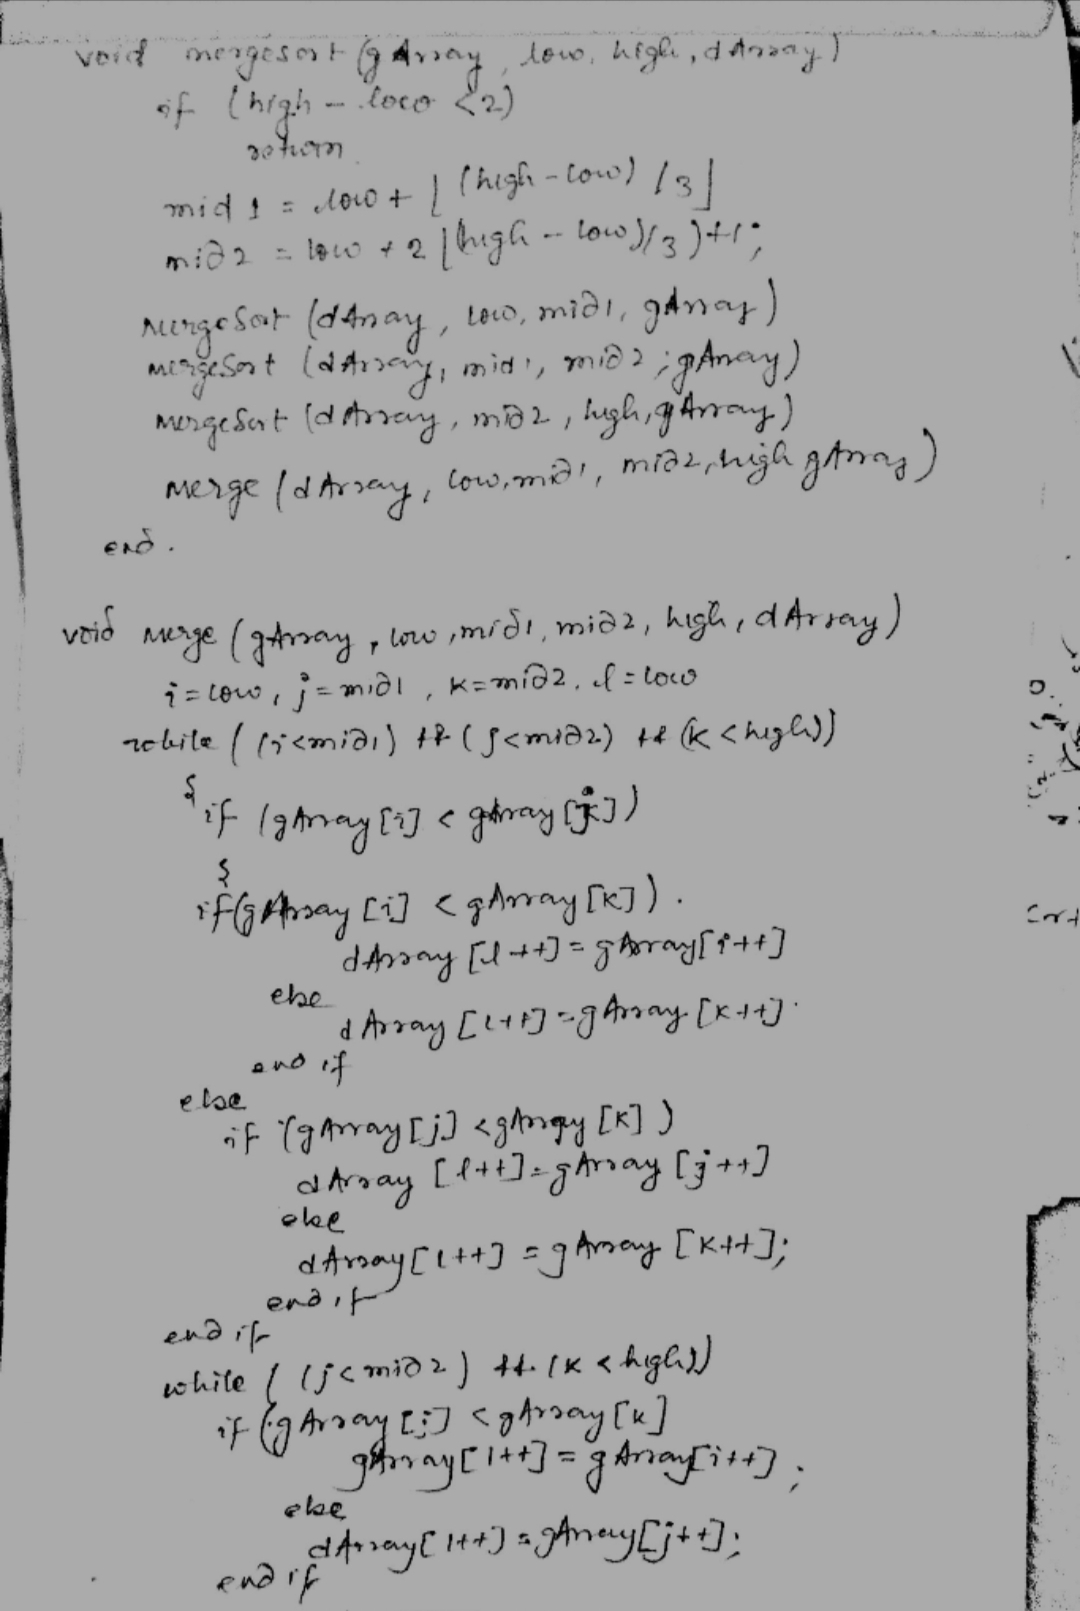 void mergesort (gArray, low, high, dArray)
if (high - low < 2)
return
mid 1 = low + ⌊ (high - low) / 3 ⌋
mid2 = low + 2 ⌊(high - low)/3 ) + 1;
MergeSort (dArray, low, mid1, gArray)
mergeSort (dArray, mid1, mid2, gArray)
mergeSort (dArray, mid2, high, gArray)
Merge (dArray, low, mid1, mid2, high gArray)
end.
void merge (gArray, low, mid1, mid2, high, dArray)
i = low, j = mid1, k = mid2, l = low
while ( (i < mid1) && (j < mid2) && (k < high))
{ if (gArray [i] < gArray [j])
{
if (gArray [i] < gArray [k]).
dArray [l++] = gArray[i++]
else
dArray [l++] = gArray [k++].
end if
else
if (gArray [j] < gArray [k])
dArray [l++] = gArray [j++]
else
dArray [l++] = gArray [k++];
end if
end if
while ( (j < mid2) && (k < high))
if (gArray [j] < gArray [k]
gArray [l++] = gArray[i++];
else
dArray [l++] = gArray[j++];
end if